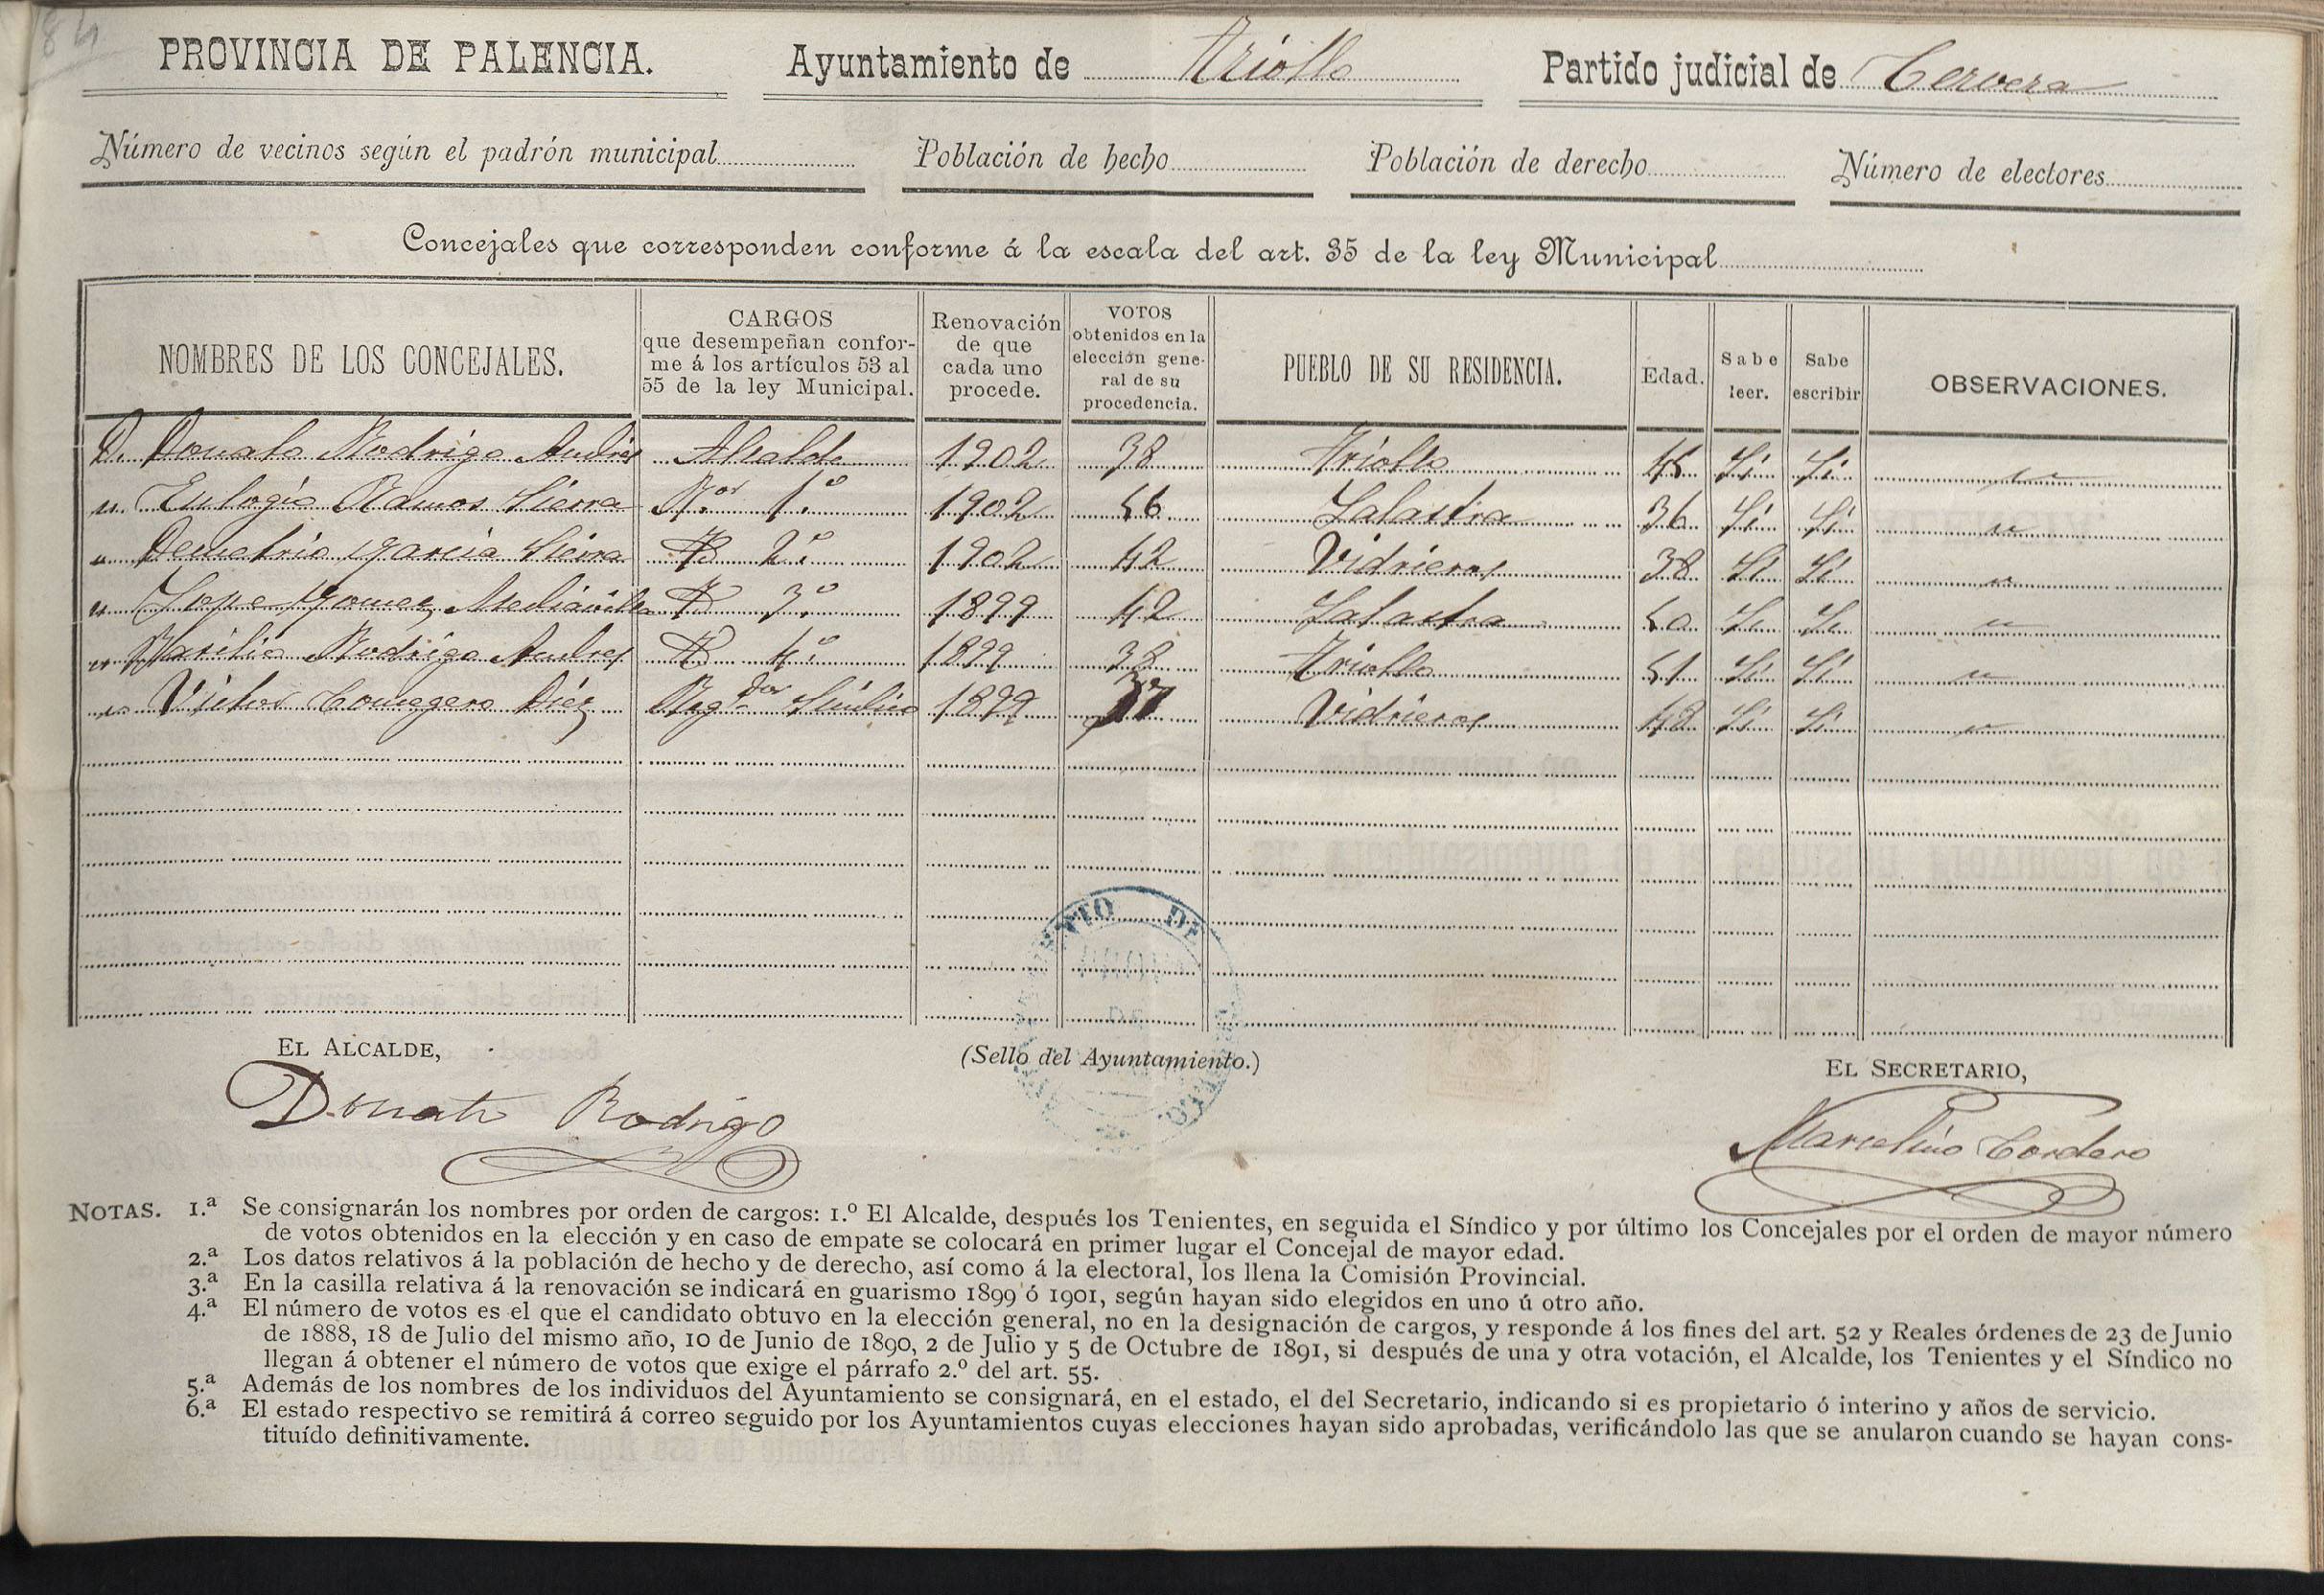 84
PROVINCIA DE PALENCIA. Ayuntamiento de Triollo Partido judicial de Cervera
Número de vecinos según el padrón municipal Población de hecho Población de derecho Número de electores
Concejales que corresponden conforme á la escala del art. 35 de la ley Municipal
NOMBRES DE LOS CONCEJALES. CARGOS que desempeñan confor- me á los artículos 53 al 55 de la ley Municipal. Renovación de que cada uno procede. VOTOS obtenidos en la elección gene- ral de su procedencia. PUEBLO DE SU RESIDENCIA. Edad. Sabe leer. Sabe escribir OBSERVACIONES.
D. Donato Rodrigo Andres Alcalde 1902 38 Triollo 45 Si Si "
" Eulogio Ramos Sierra R.or 1.º 1902 56 Lalastra 36 Si Si "
" Demetrio Garcia Sierra 2.º 1902 42 Vidrieros 38 Si Si "
" Lope Gomez Mediavilla 3.º 1899 42 Lalastra 50 Si Si "
" Basilio Rodrigo Andres 4.º 1899 38 Triollo 51 Si Si "
" Victor Comegero Diez Reg.dor Síndico 1899 37 Vidrieros 48 Si Si "
EL ALCALDE, (Sello del Ayuntamiento.) EL SECRETARIO,
Donato Rodrigo Marcelino Cordero
NOTAS. 1.ª Se consignarán los nombres por orden de cargos: 1.º El Alcalde, después los Tenientes, en seguida el Síndico y por último los Concejales por el orden de mayor número
de votos obtenidos en la elección y en caso de empate se colocará en primer lugar el Concejal de mayor edad.
2.ª Los datos relativos á la población de hecho y de derecho, así como á la electoral, los llena la Comisión Provincial.
3.ª En la casilla relativa á la renovación se indicará en guarismo 1899 ó 1901, según hayan sido elegidos en uno ú otro año.
4.ª El número de votos es el que el candidato obtuvo en la elección general, no en la designación de cargos, y responde á los fines del art. 52 y Reales órdenes de 23 de Junio
de 1888, 18 de Julio del mismo año, 10 de Junio de 1890, 2 de Julio y 5 de Octubre de 1891, si después de una y otra votación, el Alcalde, los Tenientes y el Síndico no
llegan á obtener el número de votos que exige el párrafo 2.º del art. 55.
5.ª Además de los nombres de los individuos del Ayuntamiento se consignará, en el estado, el del Secretario, indicando si es propietario ó interino y años de servicio.
6.ª El estado respectivo se remitirá á correo seguido por los Ayuntamientos cuyas elecciones hayan sido aprobadas, verificándolo las que se anularon cuando se hayan cons-
tituído definitivamente.